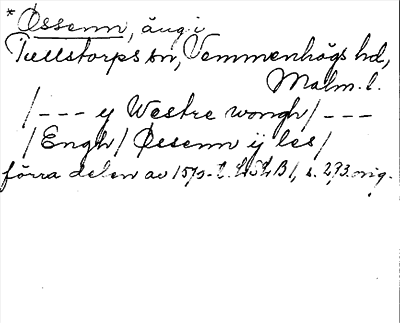 *Össenn, äng i
Tullstorps sn, Vemmenhögs hd,
Malm. l.
/--- y Westre wongh/---
/Engh/ Össenn ij les/
förra delen av 1570-t. LSLB1, s. 293. orig.